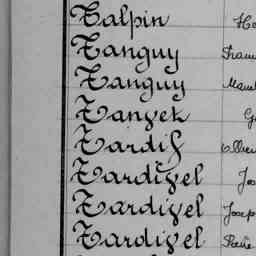 Talpin
Tanguy
Tanguy
Tanyek
Tardif
Tardivel
Tardivel Josep
Tardivel René